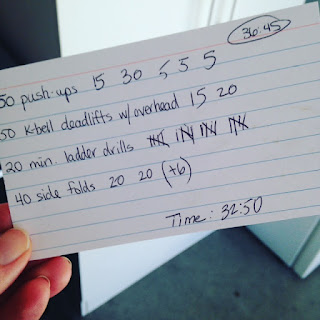 36:45
50 push-ups 15 30 5 5 5
50 k-bell deadlifts w/ overhead 15 20
20 min. ladder drills
40 side folds 20 20 (+6)
Time: 32:50